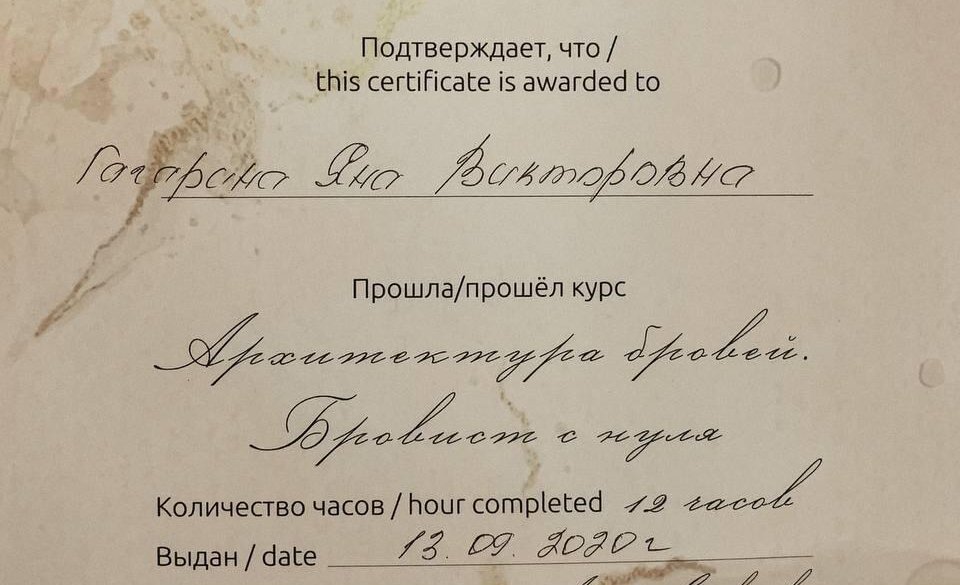 Подтверждает, что /
this certificate is awarded to
Гагарина Яна Викторовна
Прошла/прошёл курс
Архитектура бровей.
Бровист с нуля
Количество часов / hour completed 12 часов
Выдан / date 13.09.2020г